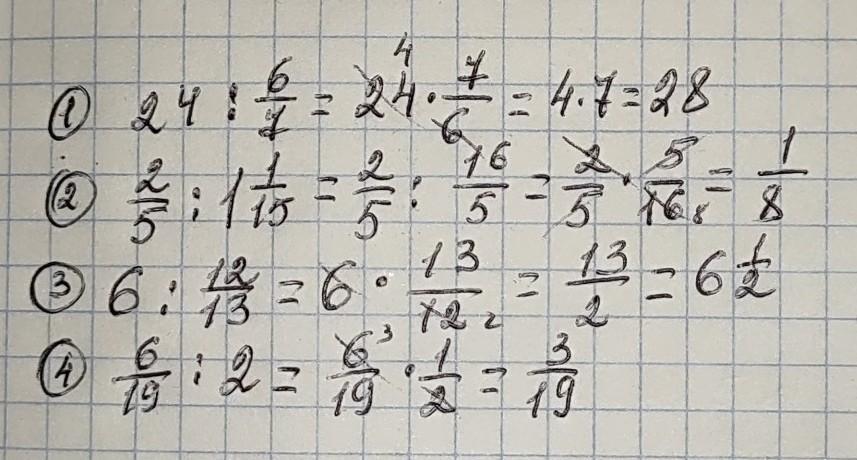 ① 24 : 6/7 = 24 4 · 7/6 = 4 · 7 = 28
② 2/5 : 1 1/15 = 2/5 : 16/5 = 2/5 · 5/16 8 = 1/8
③ 6 : 12/13 = 6 · 13/12 2 = 13/2 = 6 1/2
④ 6/19 : 2 = 6 3/19 · 1/2 = 3/19